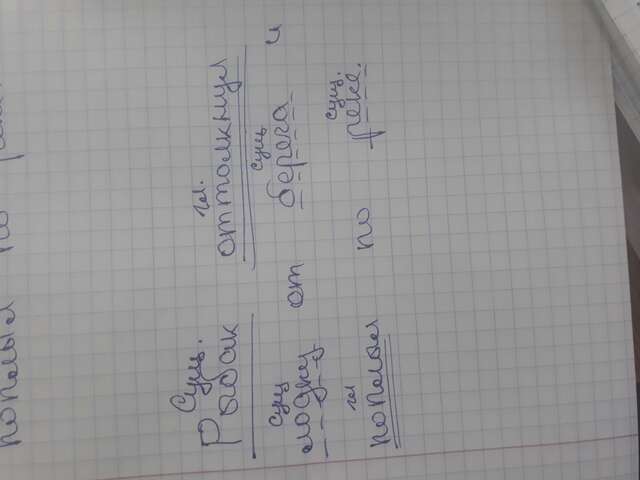 поплыл по
сущ. гл.
Рыбак оттолкнул
сущ сущ
лодку от берега и
гл сущ.
поплыл по реке.